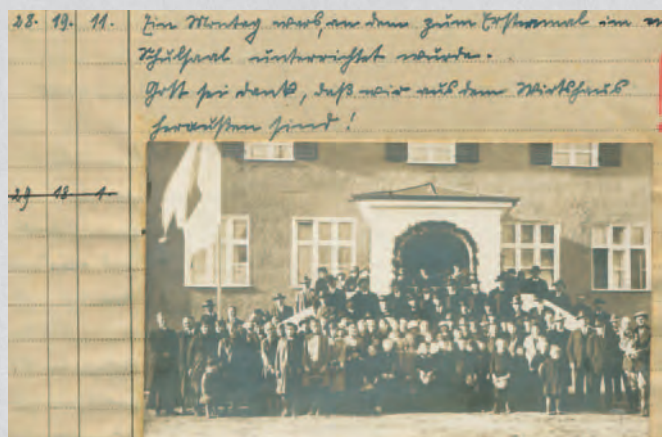 28. 19. 11. Ein Montag wars, an dem zum Erstenmal im
Schulsaal unterrichtet wurde.
Gott sei dank, daß wir aus dem Wirtshaus
heraußen sind!
29 18 1